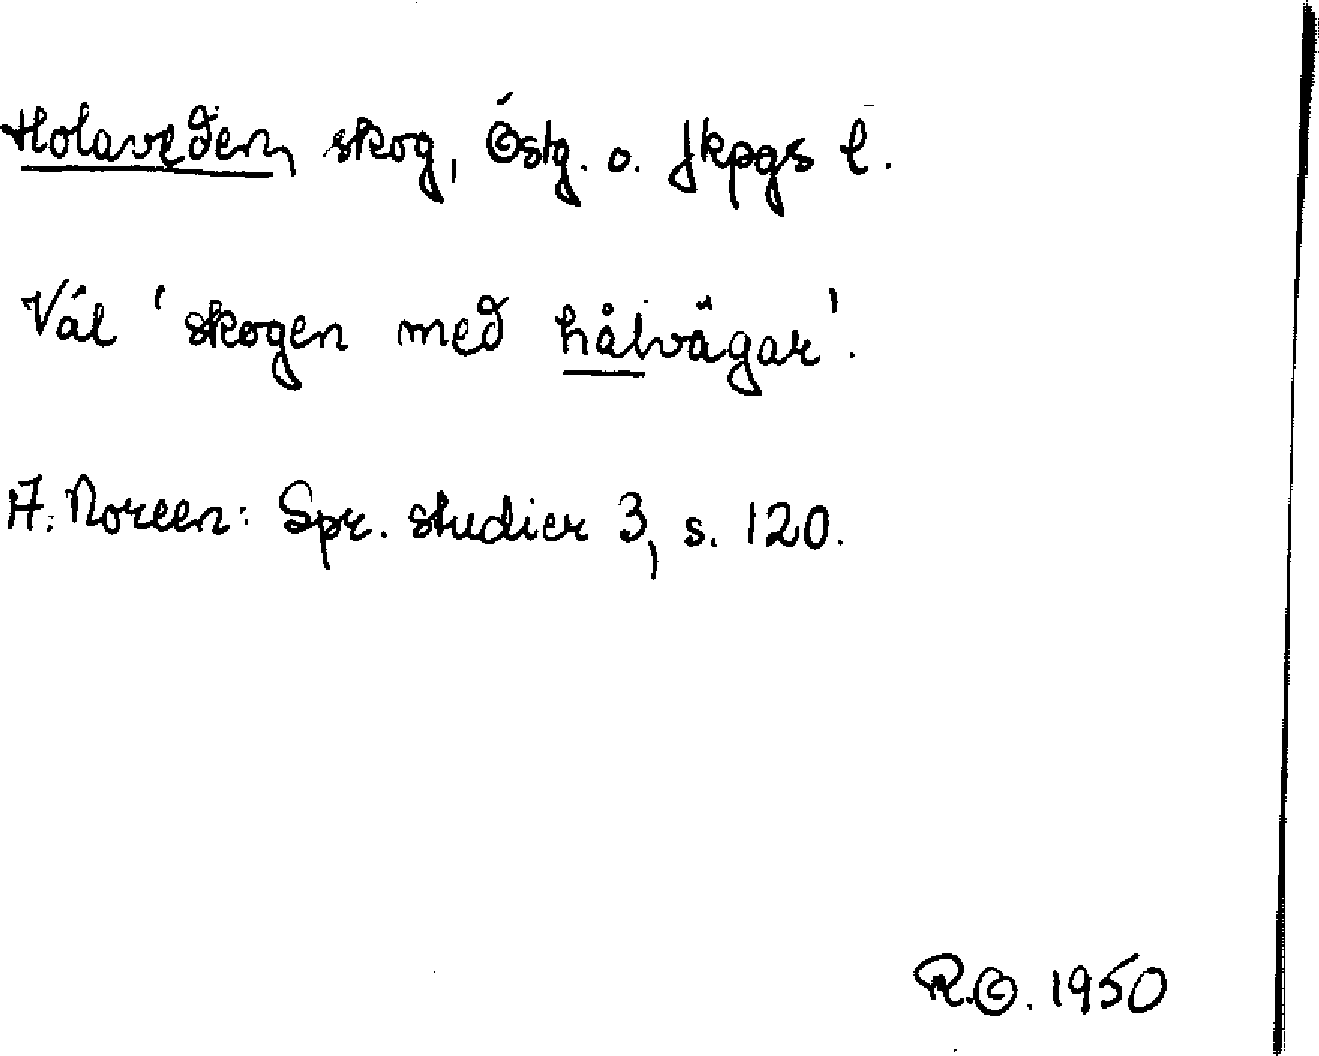 Holaveden, skog, Östg. o. Jkpgs l.
Väl 'skogen med hålvägar'.
A. Noreen: Spr. studier 3, s. 120.
R.G. 1950